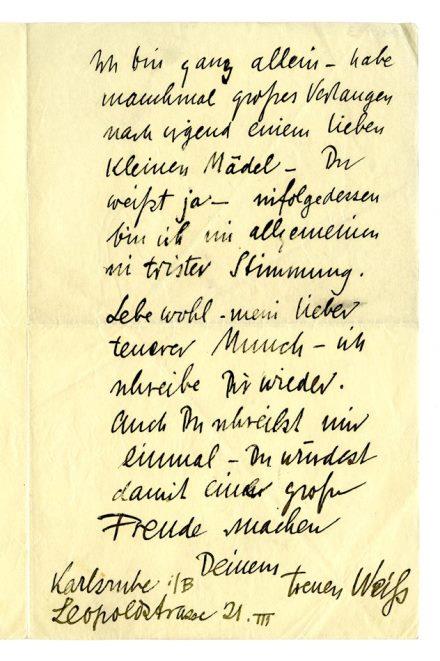 Ich bin ganz allein – habe
manchmal großes Verlangen
nach irgend einem lieben
kleinen Mädel – Du
weißt ja – infolgedessen
bin ich im allgemeinen
in trister Stimmung.
Lebe wohl – mein lieber
teuerer Munch – ich
schreibe Dir wieder.
Auch Du schreibst mir
einmal – Du würdest
damit eine große
Freude machen
Deinem
treuen Weiß
Karlsruhe i/B
Leopoldstrasse 21. III